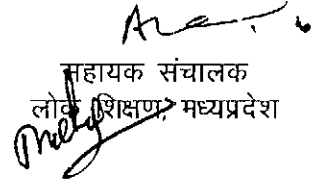 सहायक संचालक
लोक शिक्षण, मध्यप्रदेश